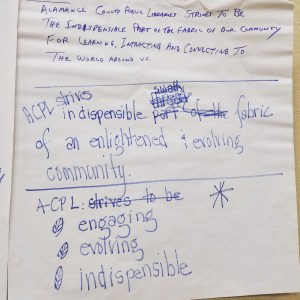 ALAMANCE COUNTY PUBLIC LIBRARIES STRIVES TO BE
THE INDISPENSIBLE PART IN THE FABRIC OF OUR COMMUNITY
FOR LEARNING, INTERACTING AND CONNECTING TO
THE WORLD AROUND US.
strives swath
thread
ACPL indispensible part of the fabric
of an enlightened & evolving
community.
ACPL: strives to be
engaging
evolving
indispensible